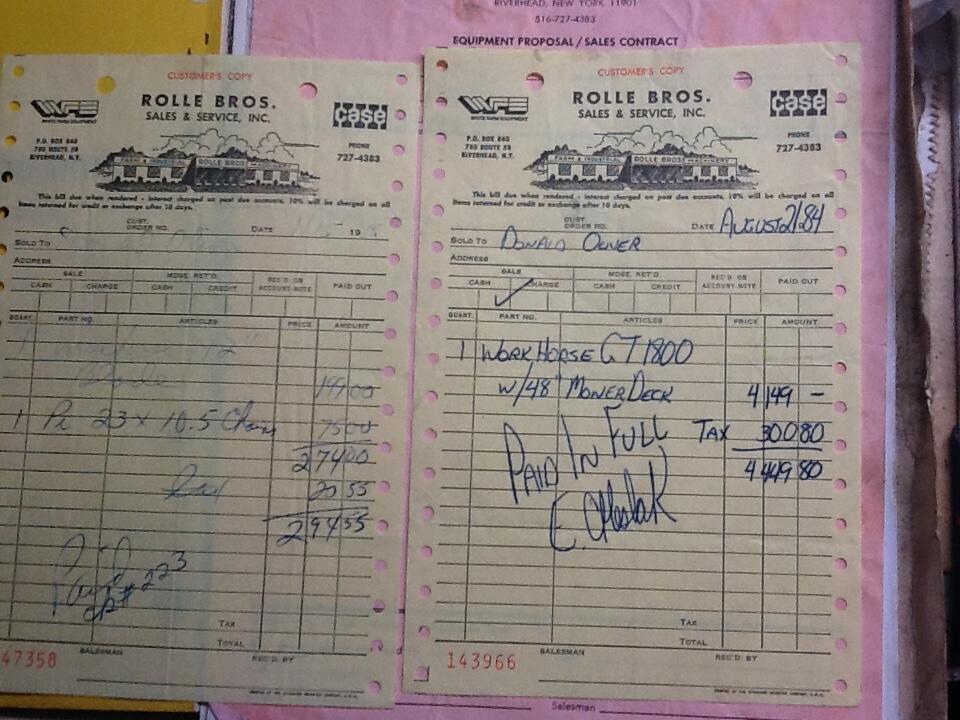 RIVERHEAD, NEW YORK 11901
516-727-4383
EQUIPMENT PROPOSAL / SALES CONTRACT
CUSTOMER'S COPY
WFE
WHITE FARM EQUIPMENT
ROLLE BROS.
SALES & SERVICE, INC.
case
P.O. BOX 860
780 ROUTE 58
RIVERHEAD, N.Y.
PHONE
727-4383
FARM & INDUSTRIAL ROLLE BROS. MACHINERY
This bill due when rendered - interest charged on past due accounts. 10% will be charged on all
items returned for credit or exchange after 10 days.
CUST. ORDER NO. DATE 19
SOLD TO
ADDRESS
SALE MDSE. RET'D. REC'D. ON ACCOUNT-NOTE PAID OUT
CASH CHARGE CASH CREDIT
QUANT. PART NO. ARTICLES PRICE AMOUNT
Blade 199 00
1 Pr 23 x 10.5 Chains 75 00
274 00
20 55
294 55
Paid
ck# 223
TAX
TOTAL
SALESMAN REC'D. BY
47358
CUSTOMER'S COPY
WFE
WHITE FARM EQUIPMENT
ROLLE BROS.
SALES & SERVICE, INC.
case
P.O. BOX 860
780 ROUTE 58
RIVERHEAD, N.Y.
PHONE
727-4383
FARM & INDUSTRIAL ROLLE BROS. MACHINERY
This bill due when rendered - interest charged on past due accounts. 10% will be charged on all
items returned for credit or exchange after 10 days.
CUST. ORDER NO. DATE AUGUST 21 84
SOLD TO DONALD OLIVER
ADDRESS
SALE MDSE. RET'D. REC'D. ON ACCOUNT-NOTE PAID OUT
CASH CHARGE CASH CREDIT
QUANT. PART NO. ARTICLES PRICE AMOUNT
1 WORK HORSE GT 1800
W/48" MOWER DECK 4149 -
TAX 300 80
4449 80
PAID IN FULL
TAX
TOTAL
SALESMAN REC'D. BY
143966
Salesman